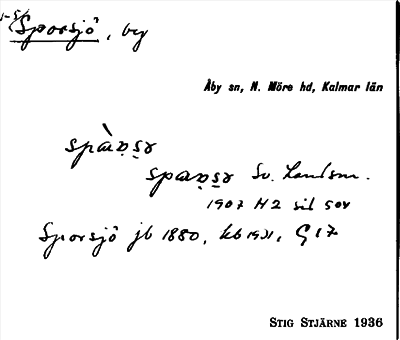 Sporsjö, by
Åby sn, N. Möre hd, Kalmar län
Sv. Landsm.
1907 H 2 sid 504
Sporsjö jb 1880, kb 1931, G 17
STIG STJÄRNE 1936